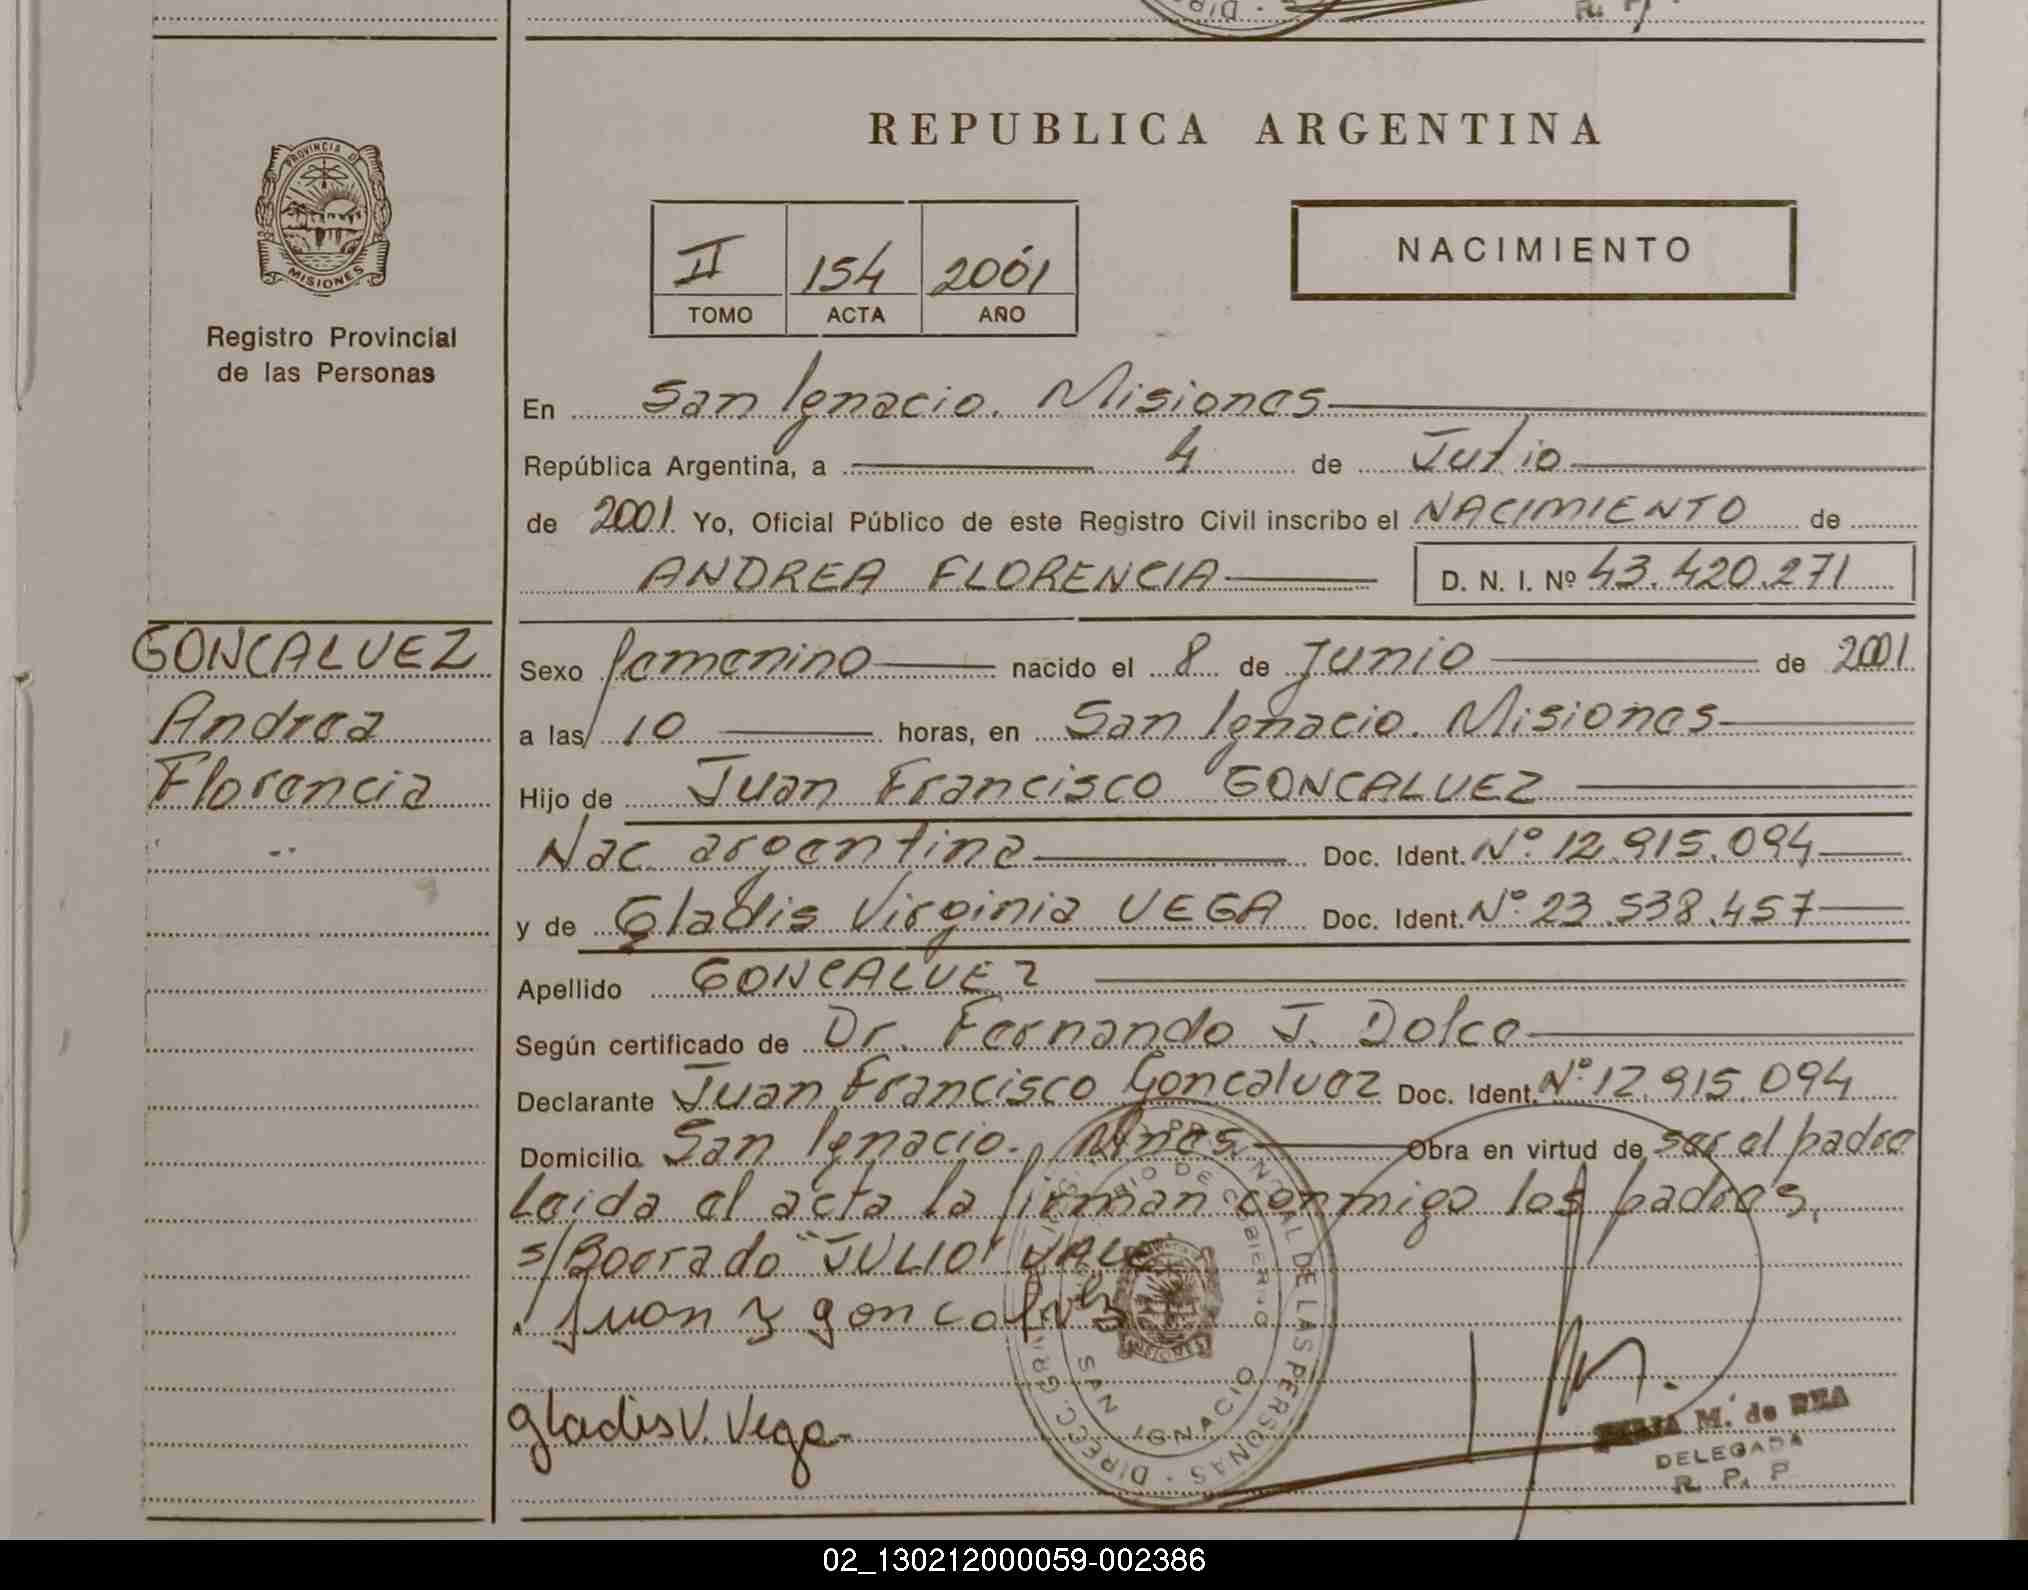 REPUBLICA ARGENTINA
PROVINCIA D
MISIONES
Registro Provincial
de las Personas
II 154 2001
TOMO ACTA AÑO
NACIMIENTO
En San Ignacio. Misiones
República Argentina, a 4 de Julio
de 2001 Yo, Oficial Público de este Registro Civil inscribo el NACIMIENTO de
ANDREA FLORENCIA D. N. I. Nº 43.420.271
GONCALVEZ
Andrea
Florencia
Sexo femenino nacido el 8 de Junio de 2001
a las 10 horas, en San Ignacio. Misiones
Hijo de Juan Francisco GONCALVEZ
Nac. argentina Doc. Ident. Nº 12.915.094
y de Gladis Virginia VEGA Doc. Ident. Nº 23.538.457
Apellido GONCALVEZ
Según certificado de Dr. Fernando J. Dolce
Declarante Juan Francisco Goncalvez Doc. Ident. Nº 12.915.094
Domicilio San Ignacio. Mnes Obra en virtud de ser el padre
Leida el acta la firman conmigo los padres,
s/Borrado "JULIO" VALE
Juan goncalvez
gladis V. Vega
SAN IGNACIO
DIRECC. GRAL DE LAS PERSONAS
M. de REA
DELEGADA
R. P. P
02_130212000059-002386